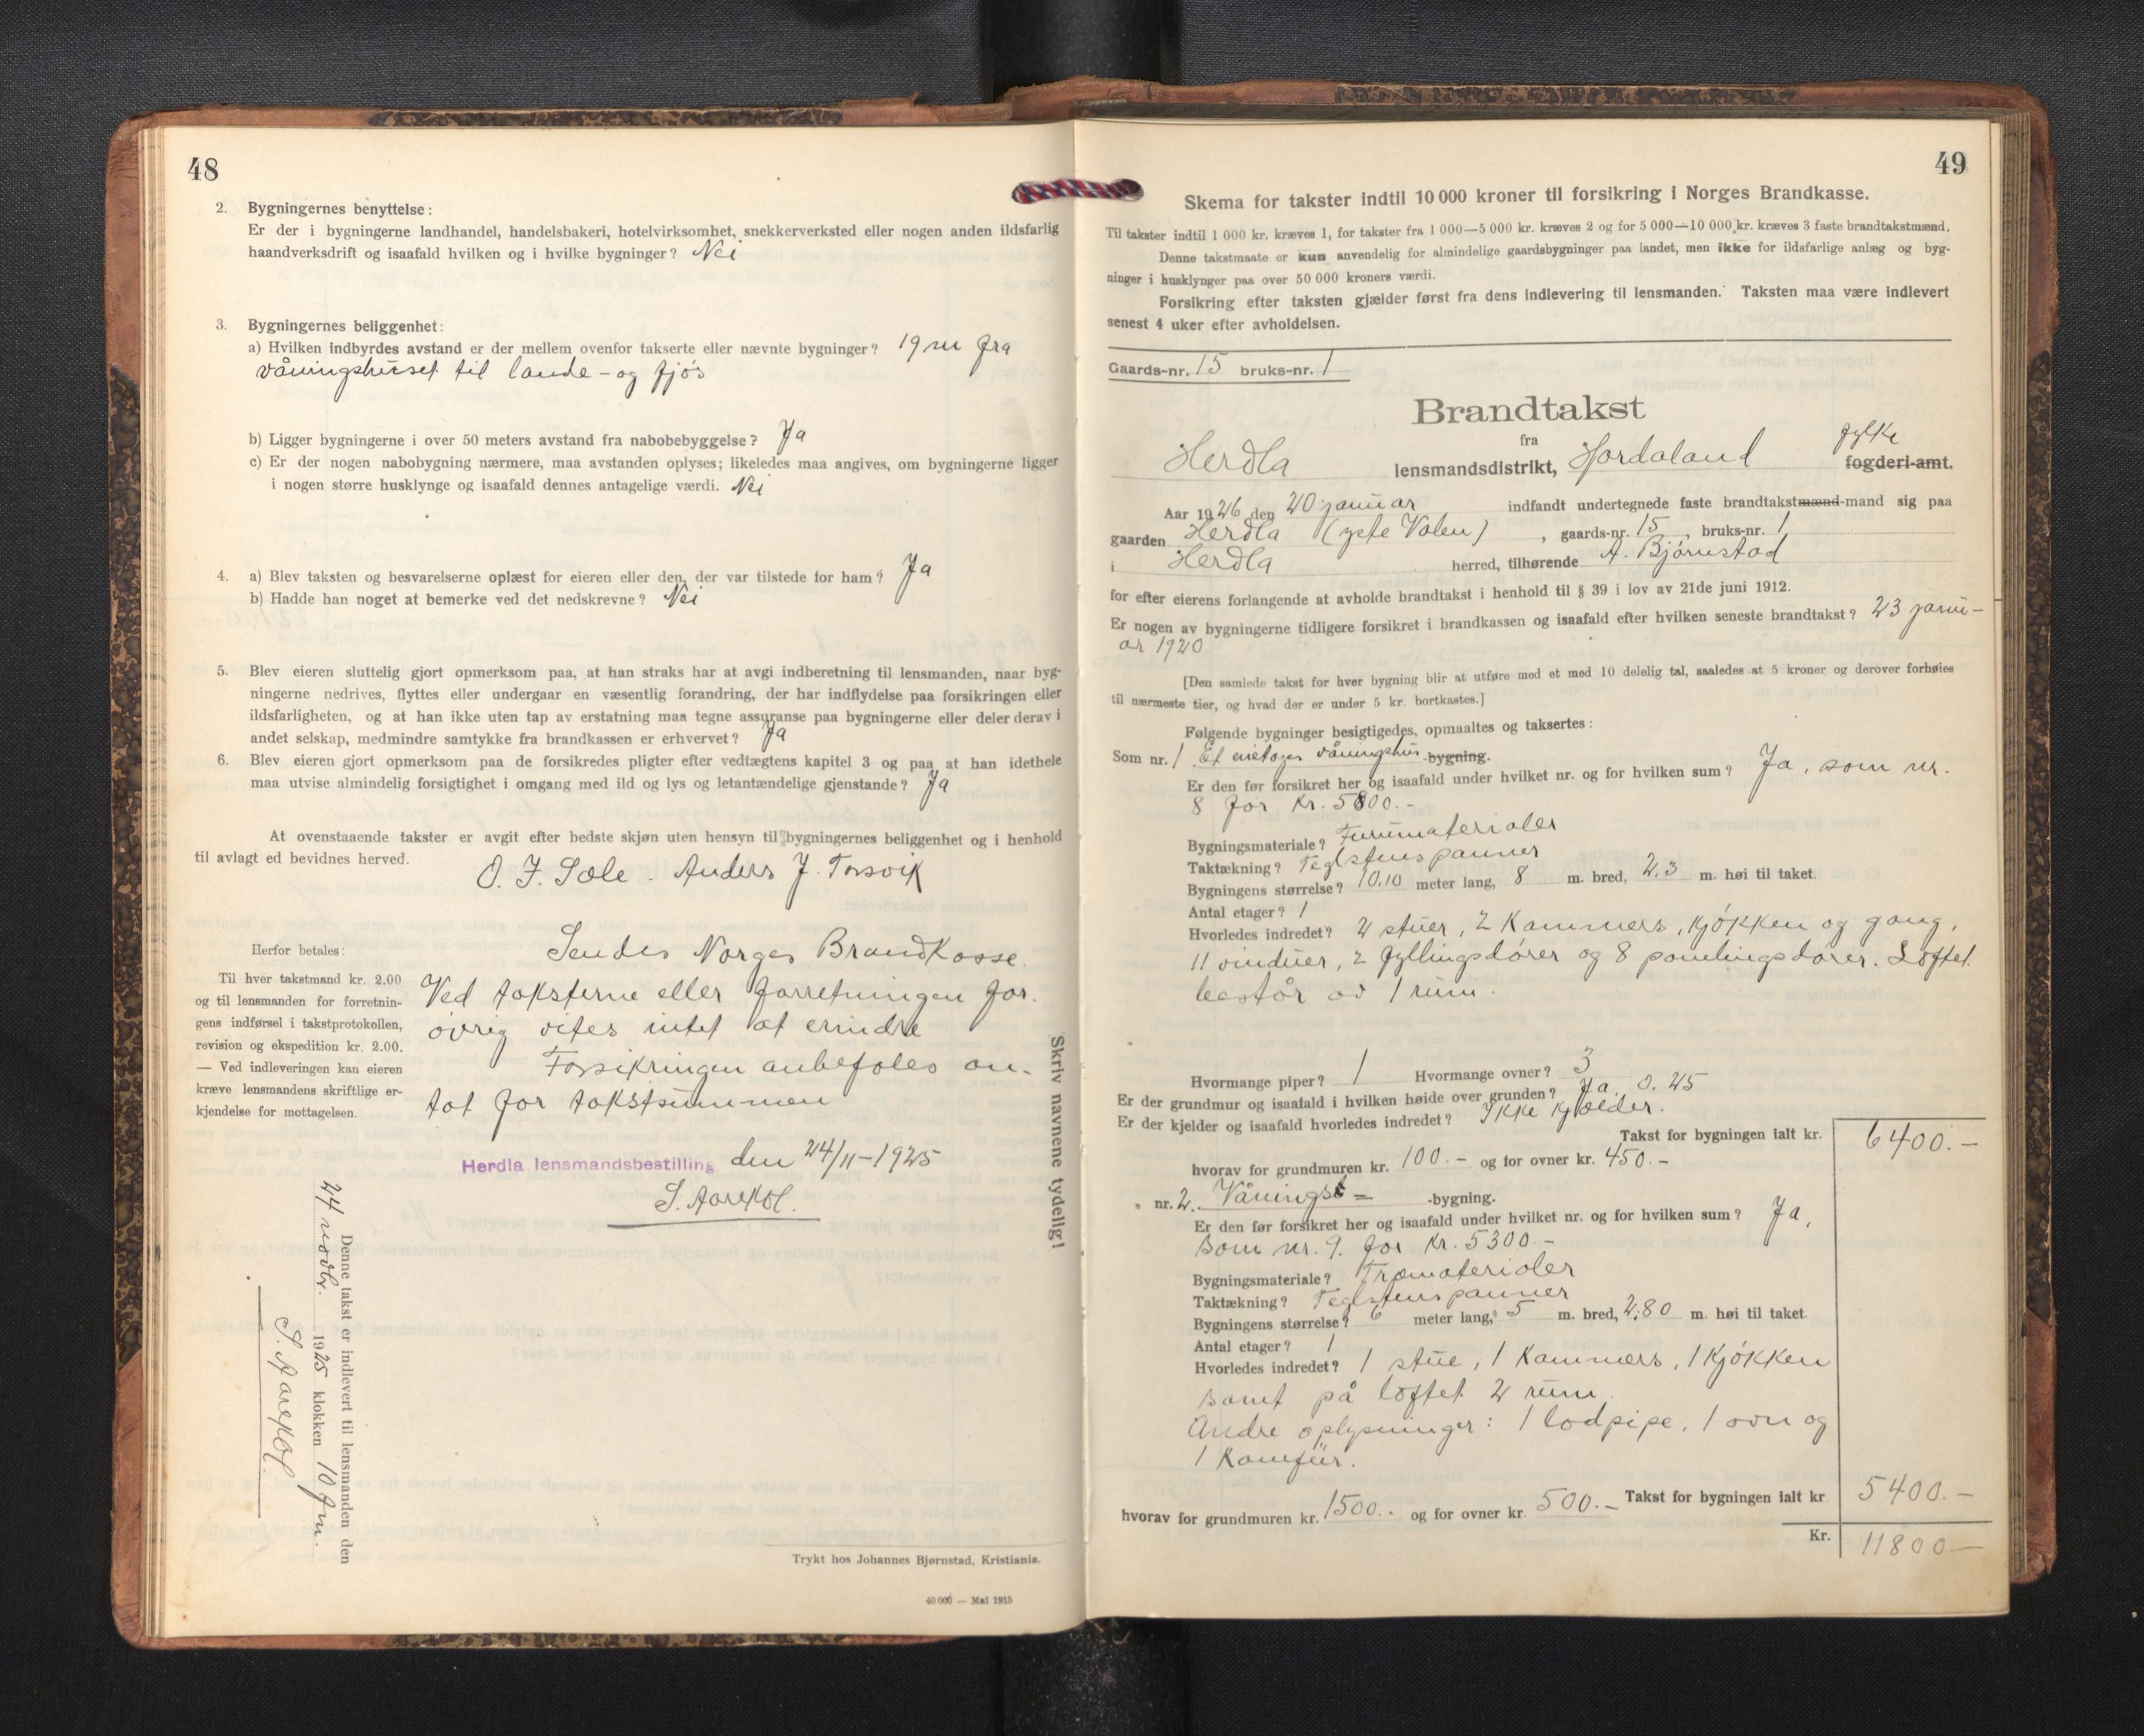 48
2. Bygningernes benyttelse:
Er der i bygningerne landhandel, handelsbakeri, hotelvirksomhet, snekkerverksted eller nogen anden ildsfarlig
haandverksdrift og isaafald hvilken og i hvilke bygninger? Nei
3. Bygningernes beliggenhet:
a) Hvilken indbyrdes avstand er der mellem ovenfor takserte eller nævnte bygninger? 19 m fra
våningshuset til lande- og fjøs
b) Ligger bygningerne i over 50 meters avstand fra nabobebyggelse? Ja
c) Er der nogen nabobygning nærmere, maa avstanden oplyses; likeledes maa angives, om bygningerne ligger
i nogen større husklynge og isaafald dennes antagelige værdi. Nei
4. a) Blev taksten og besvarelserne oplæst for eieren eller den, der var tilstede for ham? Ja
b) Hadde han noget at bemerke ved det nedskrevne? Nei
5. Blev eieren sluttelig gjort opmerksom paa, at han straks har at avgi indberetning til lensmanden, naar byg-
ningerne nedrives, flyttes eller undergaar en væsentlig forandring, der har indflydelse paa forsikringen eller
ildsfarligheten, og at han ikke uten tap av erstatning maa tegne assuranse paa bygningerne eller deler derav i
andet selskap, medmindre samtykke fra brandkassen er erhvervet? Ja
6. Blev eieren gjort opmerksom paa de forsikredes pligter efter vedtægtens kapitel 3 og paa at han idethele
maa utvise almindelig forsigtighet i omgang med ild og lys og letantændelige gjenstande? Ja
At ovenstaaende takster er avgit efter bedste skjøn uten hensyn til bygningernes beliggenhet og i henhold
til avlagt ed bevidnes herved.
O. J. Sole. Anders J. Torsvik
Herfor betales:
Til hver takstmand kr. 2.00
og til lensmanden for forretnin-
gens indførsel i takstprotokollen,
revision og ekspedition kr. 2.00.
— Ved indleveringen kan eieren
kræve lensmandens skriftlige er-
kjendelse for mottagelsen.
Sendes Norges Brandkasse.
Ved taksterne eller forretningen for-
øvrig vites intet at erindre
Forsikringen anbefales an-
tat for takstsummen
Herdla lensmandsbestilling den 24/11-1925
S. Aarekol.
Skriv navnene tydelig!
Denne takst er indlevert til lensmanden den
24 novbr. 1925 klokken 10 fm.
S. Aarekol.
Trykt hos Johannes Bjørnstad, Kristiania.
40 000 — Mai 1915
49
Skema for takster indtil 10 000 kroner til forsikring i Norges Brandkasse.
Til takster indtil 1 000 kr. kræves 1, for takster fra 1 000—5 000 kr. kræves 2 og for 5 000—10 000 kr. kræves 3 faste brandtakstmænd.
Denne takstmaate er kun anvendelig for almindelige gaardsbygninger paa landet, men ikke for ildsfarlige anlæg og byg-
ninger i husklynger paa over 50 000 kroners værdi.
Forsikring efter taksten gjælder først fra dens indlevering til lensmanden. Taksten maa være indlevert
senest 4 uker efter avholdelsen.
Gaards-nr. 15 bruks-nr. 1
Brandtakst
fra
Herdla lensmandsdistrikt, Hordaland fylke fogderi-amt.
Aar 1926 den 20 januar indfandt undertegnede faste brandtakstmænd-mand sig paa
gaarden Herdla (yste Valen), gaards-nr. 15, bruks-nr. 1
i Herdla herred, tilhørende A. Bjørnstad
for efter eierens forlangende at avholde brandtakst i henhold til § 39 i lov av 21de juni 1912.
Er nogen av bygningerne tidligere forsikret i brandkassen og isaafald efter hvilken seneste brandtakst? 23 janu-
ar 1920
[Den samlede takst for hver bygning blir at utføre med et med 10 delelig tal, saaledes at 5 kroner og derover forhøies
til nærmeste tier, og hvad der er under 5 kr. bortkastes.]
Følgende bygninger besigtigedes, opmaaltes og taksertes:
Som nr. 1 Et enetages våningshus bygning.
Er den før forsikret her og isaafald under hvilket nr. og for hvilken sum? Ja, som nr.
8 for kr. 5800.-
Bygningsmateriale? Furumaterialer
Taktækning? Teglstenspanner
Bygningens størrelse? 10.10 meter lang, 8 m. bred, 2.3 m. høi til taket.
Antal etager? 1
Hvorledes indredet? 2 stuer, 2 kammers, kjøkken og gang,
11 vinduer, 2 fyllingsdører og 8 panelingsdører. Loftet
består av 1 rum.
Hvormange piper? 1 Hvormange ovner? 3
Er der grundmur og isaafald i hvilken høide over grunden? Ja. 0.25
Er der kjelder og isaafald hvorledes indredet? Ikke kjælder.
Takst for bygningen ialt kr. 6400.-
hvorav for grundmuren kr. 100.- og for ovner kr. 450.-
" nr. 2. Vånings- -bygning.
Er den før forsikret her og isaafald under hvilket nr. og for hvilken sum? Ja,
som nr. 9. for kr. 5300.-
Bygningsmateriale? Træmaterialer
Taktækning? Teglstenspanner
Bygningens størrelse? 6 meter lang, 5 m. bred, 2.80 m. høi til taket.
Antal etager? 1
Hvorledes indredet? 1 stue, 1 kammers, 1 kjøkken
samt på loftet 2 rum.
Andre oplysninger: 1 lodpipe, 1 ovn og
1 komfür.
Takst for bygningen ialt kr 5400.-
hvorav for grundmuren kr. 1500.- og for ovner kr. 500.-
Kr. 11800-